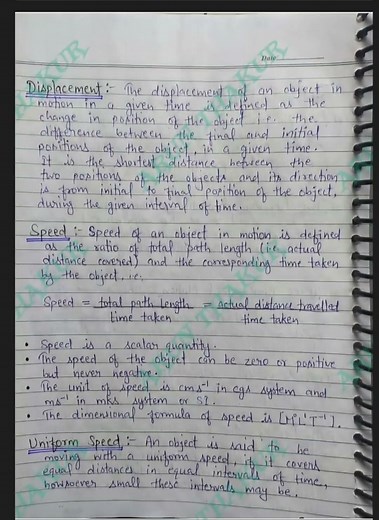 Date
Displacement :- The displacement of an object in
motion in a given time is defined as the
change in position of the object i.e. the
difference between the final and initial
positions of the object, in a given time.
It is the shortest distance between the
two positions of the objects and its direction
is from initial to final position of the object,
during the given interval of time.
Speed :- Speed of an object in motion is defined
as the ratio of total path length (i.e. actual
distance covered) and the corresponding time taken
by the object. i.e.
Speed = total path length / time taken = actual distance travelled / time taken
• Speed is a scalar quantity.
• The speed of the object can be zero or positive
but never negative.
• The unit of speed is cms⁻¹ in cgs system and
ms⁻¹ in mks system or SI.
• The dimensional formula of speed is [M⁰L¹T⁻¹].
Uniform Speed :- An object is said to be
moving with a uniform speed, if it covers
equal distances in equal intervals of time,
howsoever small these intervals may be.